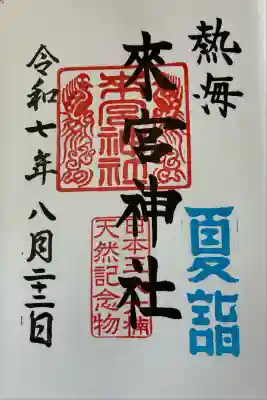 熱海
夏詣
來宮神社
來宮神社
日本 楠
天然記念物
令和七年八月二十二日